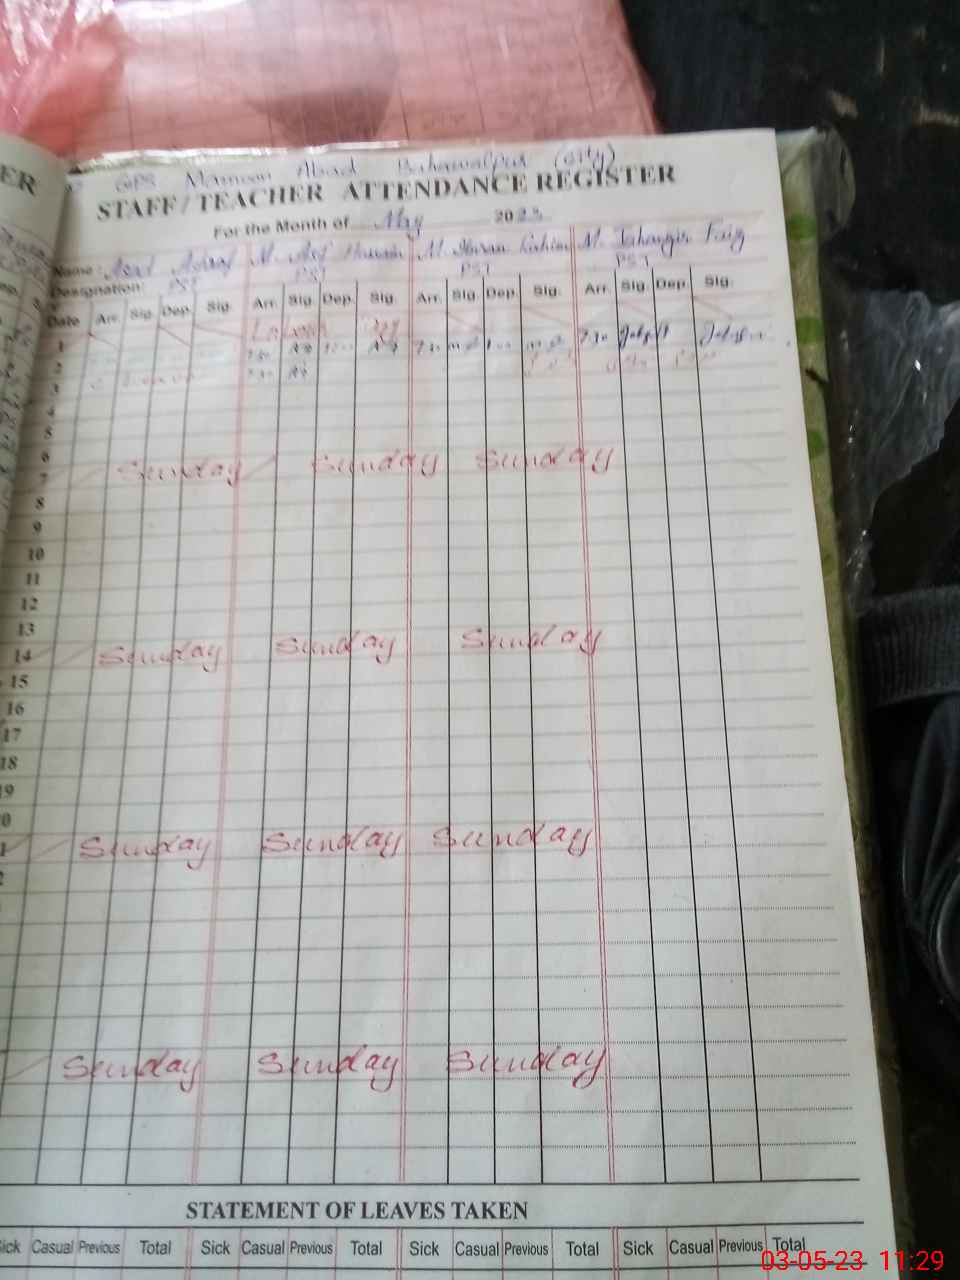 ER
GPS Mamoon Abad Bahawalpur (City)
STAFF/TEACHER ATTENDANCE REGISTER
For the Month of May 2023
Name: Asad Ashraf M. Asif Hussain M. Imran Rahim M. Jahangir Faiz
Designation: PST PST PST PST
Date Arr. Sig. Dep. Sig. Arr. Sig. Dep. Sig. Arr. Sig. Dep. Sig. Arr. Sig. Dep. Sig.
1
2 7:30
3 7:30
4
5
6
7 Sunday Sunday Sunday
8
9
10
11
12
13
14 Sunday Sunday Sunday
15
16
17
18
19
0
1 Sunday Sunday Sunday
2
Sunday Sunday Sunday
STATEMENT OF LEAVES TAKEN
Sick Casual Previous Total Sick Casual Previous Total Sick Casual Previous Total Sick Casual Previous Total
03-05-23 11:29